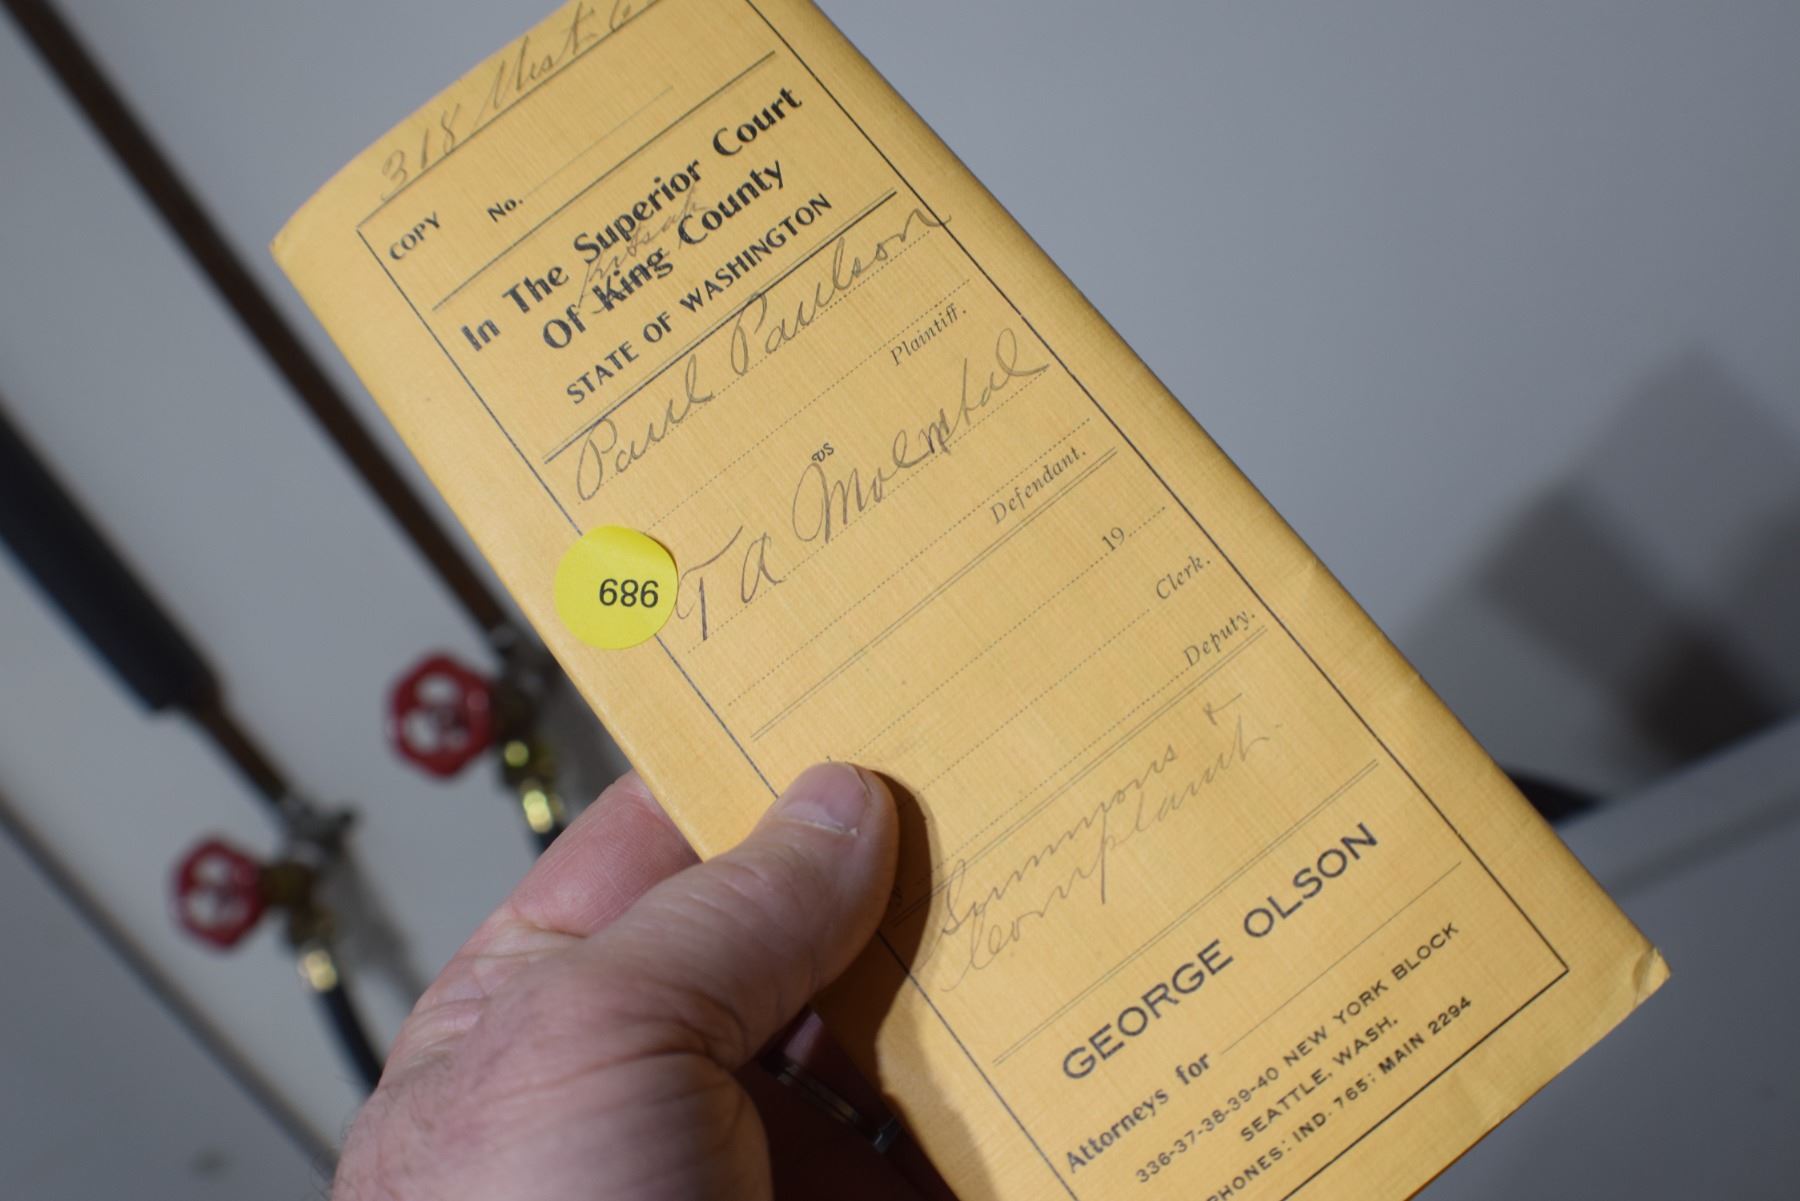 318 West 6
COPY No.
In The Superior Court
Kitsap
Of King County
STATE OF WASHINGTON
Paul Paulson
Plaintiff.
vs
T A Moenstal
Defendant.
19
Clerk.
Deputy.
686
Summons &
Complaint.
GEORGE OLSON
Attorneys for
336-37-38-39-40 NEW YORK BLOCK
SEATTLE, WASH.
PHONES: IND. 765: MAIN 2294